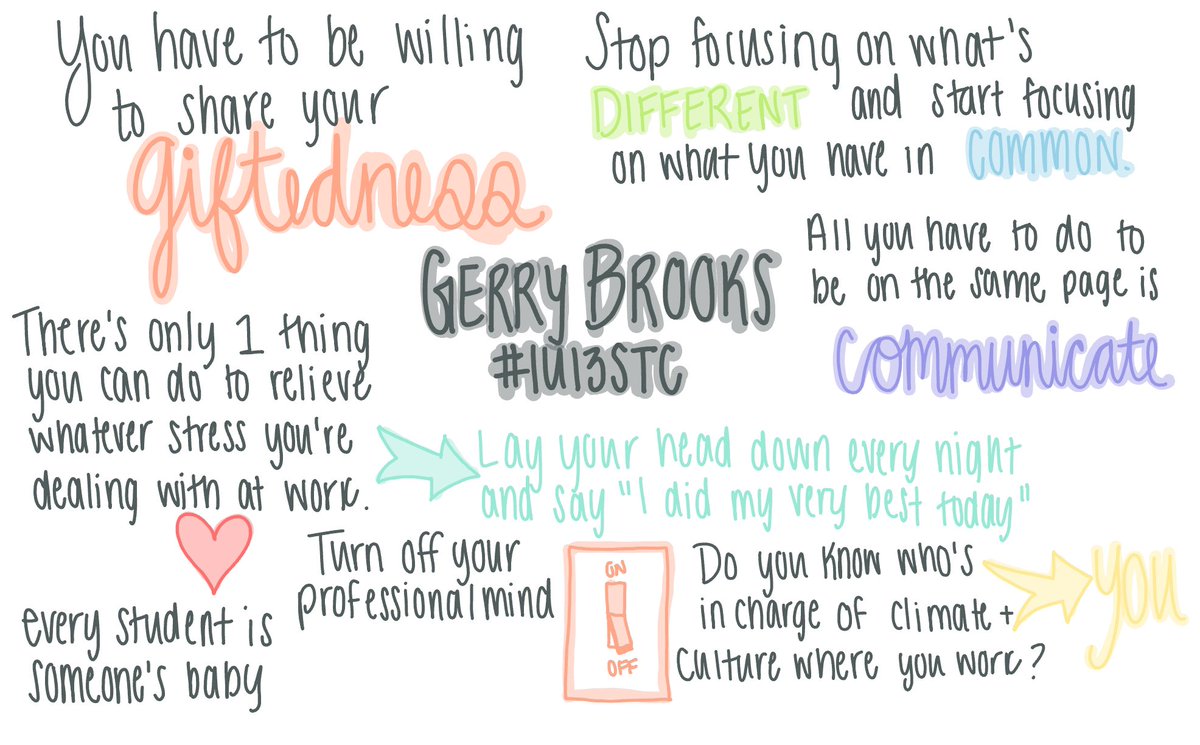 You have to be willing
to share your
giftedness
Stop focusing on what's
DIFFERENT and start focusing
on what you have in COMMON.
GERRY BROOKS
#IU13STC
All you have to do to
be on the same page is
communicate
There's only 1 thing
you can do to relieve
whatever stress you're
dealing with at work.
Lay your head down every night
and say "I did my very best today"
every student is
someone's baby
Turn off your
professional mind
ON
OFF
Do you know who's
in charge of climate +
culture where you work?
you